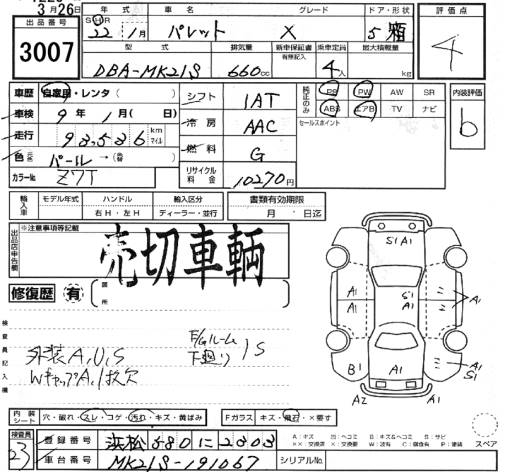 3月26日
出品番号 3007
年式 車名 グレード ドア・形状 評価点
22年 1月 パレット X 5 箱 4
型式 排気量 新車保証書 有無記入 乗車定員 最大積載量
DBA-MK21S 660cc 4人 kg
車歴 自家用・レンタ( ) シフト 1AT 純正のみ PS PW AW SR 内装評価
車検 9年 1月( 日) 冷房 AAC ABS エアB TV ナビ b
走行 93,536 km マイル セールスポイント
色 元色 パール→(色替 ) 燃料 G
カラーNo. Z7T リサイクル料金 10270円
輸入車 モデル年式 ハンドル 輸入区分 書類有効期限
右H・左H ディーラー・並行 月 日迄
出品店申告欄 ※注意事項等記載
売切車輌
修復歴 有 箇所
S1 A1
A1 S1 A1
A1 A1 A1
B1 A1 A1 S1
A2 A1
検査員記入欄
外装A,U,S
WキャップA,1枚欠
F/Gルーム 下廻り S
内装シート 穴・破れ・スレ・コゲ・汚れ・キズ・黄ばみ Fガラス キズ・飛石・×要す
スペア
検査員 23
登録番号 浜松 580 に 2303
A:キズ U:ヘコミ B:キズ&ヘコミ S:サビ
××:交換済 X:要交換 W:波有 C:腐食有 P:塗装
車台番号 MK21S-191067 シリアルNo.